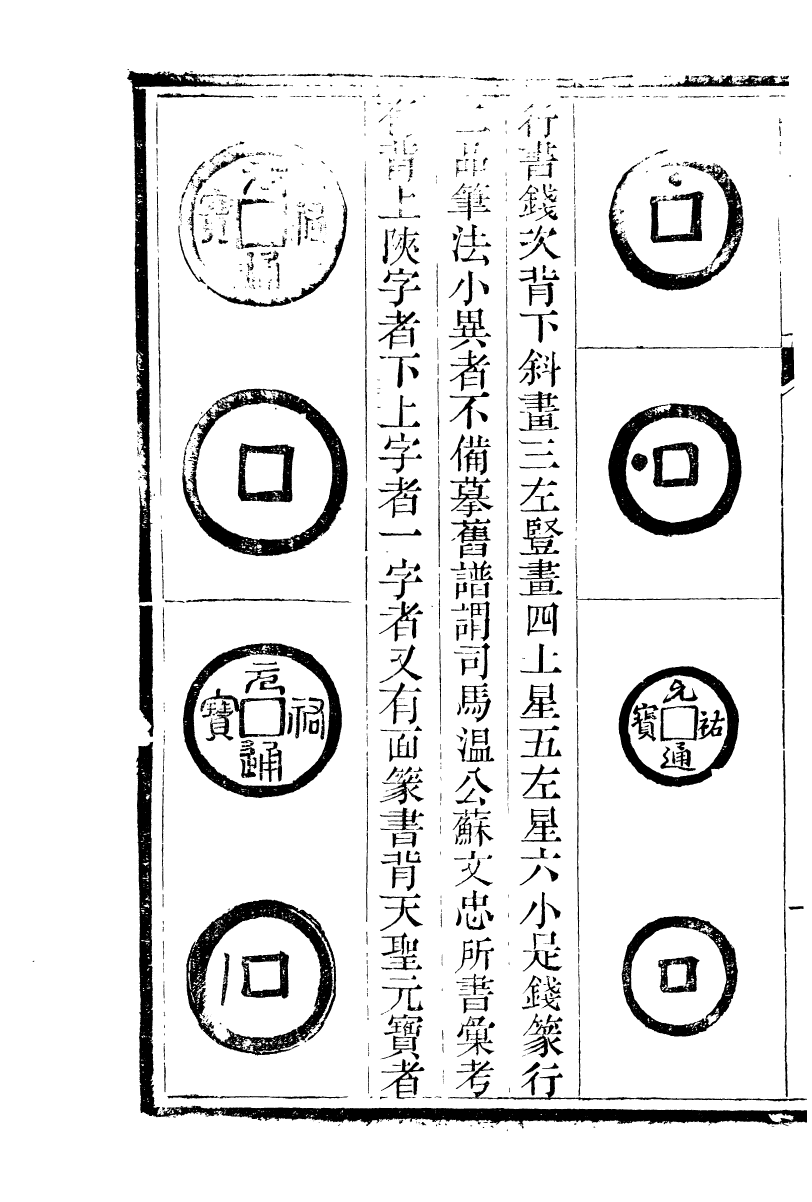 元祐通寶
行書錢次背下斜畫三左豎畫四上星五左星六小足錢篆行
二品筆法小異者不備摹舊譜謂司馬温公蘇文忠所書彙考
有背上陝字者下上字者一字者又有面篆書背天聖元寶者
元祐通寶
元祐通寶